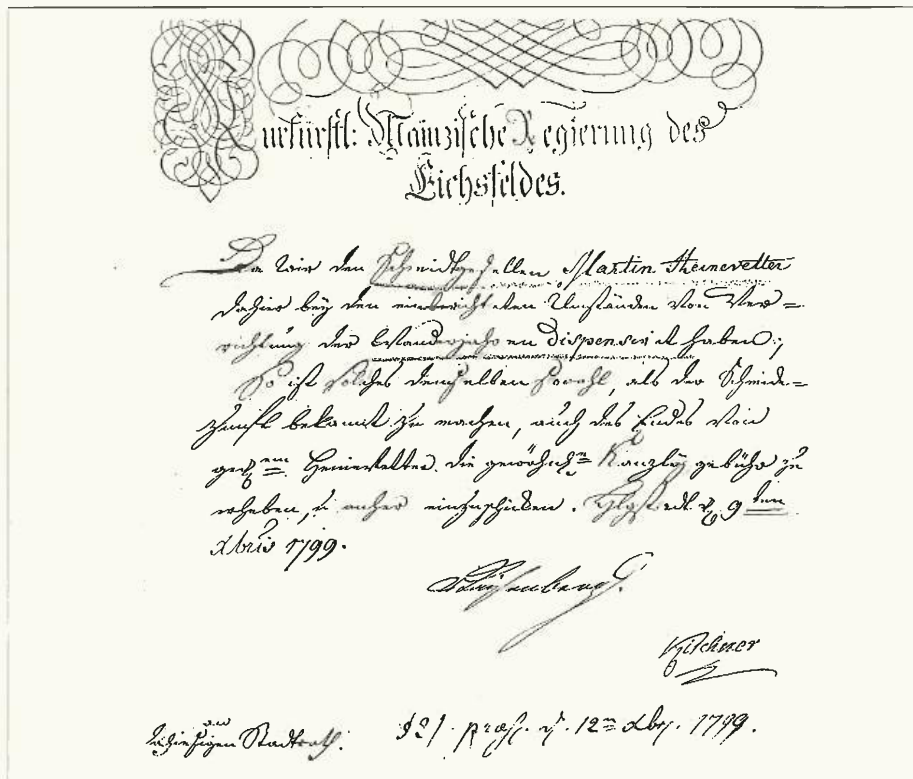 Kurfürstl: Mainzische Regierung des
Eichsfeldes.
Da wir den Schmidtgesellen Martin Heinevetter
dahier bey den einberichteten Umständen von Ver=
richtung der Wanderjahren dispensirt haben;
So ist solches demselben sowohl, als der Schmide=
zunft bekannt zu machen, auch des Endes von
Heinevetter die gewöhnl. Kanzley gebühr zu
erheben, u. anher einzuschicken. Hlgstadt d. 9ten
Xbris 1799.
an
hiesigen Stadtrath.
praes. d. 12ten Xbr. 1799.